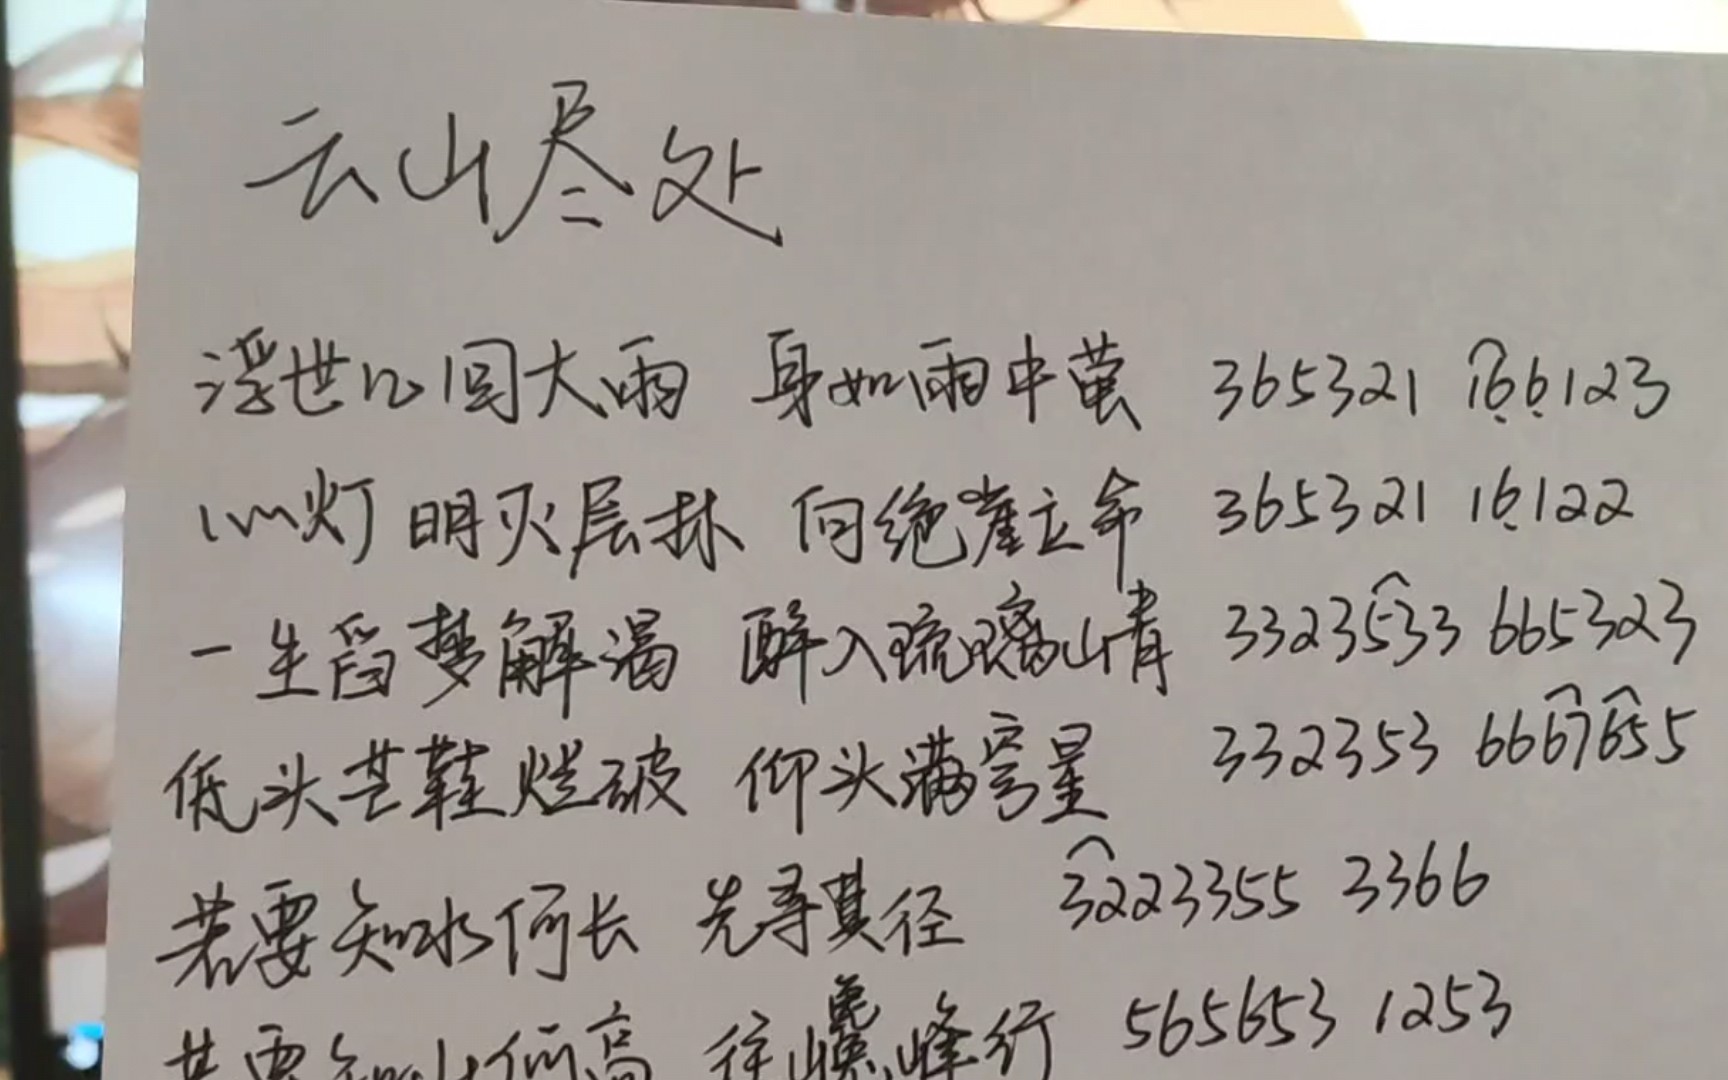 云山尽处
浮世几回大雨 身如雨中萤 365321 166123
心灯明灭层林 向绝崖立命 365321 16122
一生舀梦解渴 醉入琉璃山青 3323533 665323
低头芒鞋烂破 仰头满穹星 332353 6667655
若要知水何长 先寻其径 3223355 3366
若要知山何高 往峰行 565653 1253